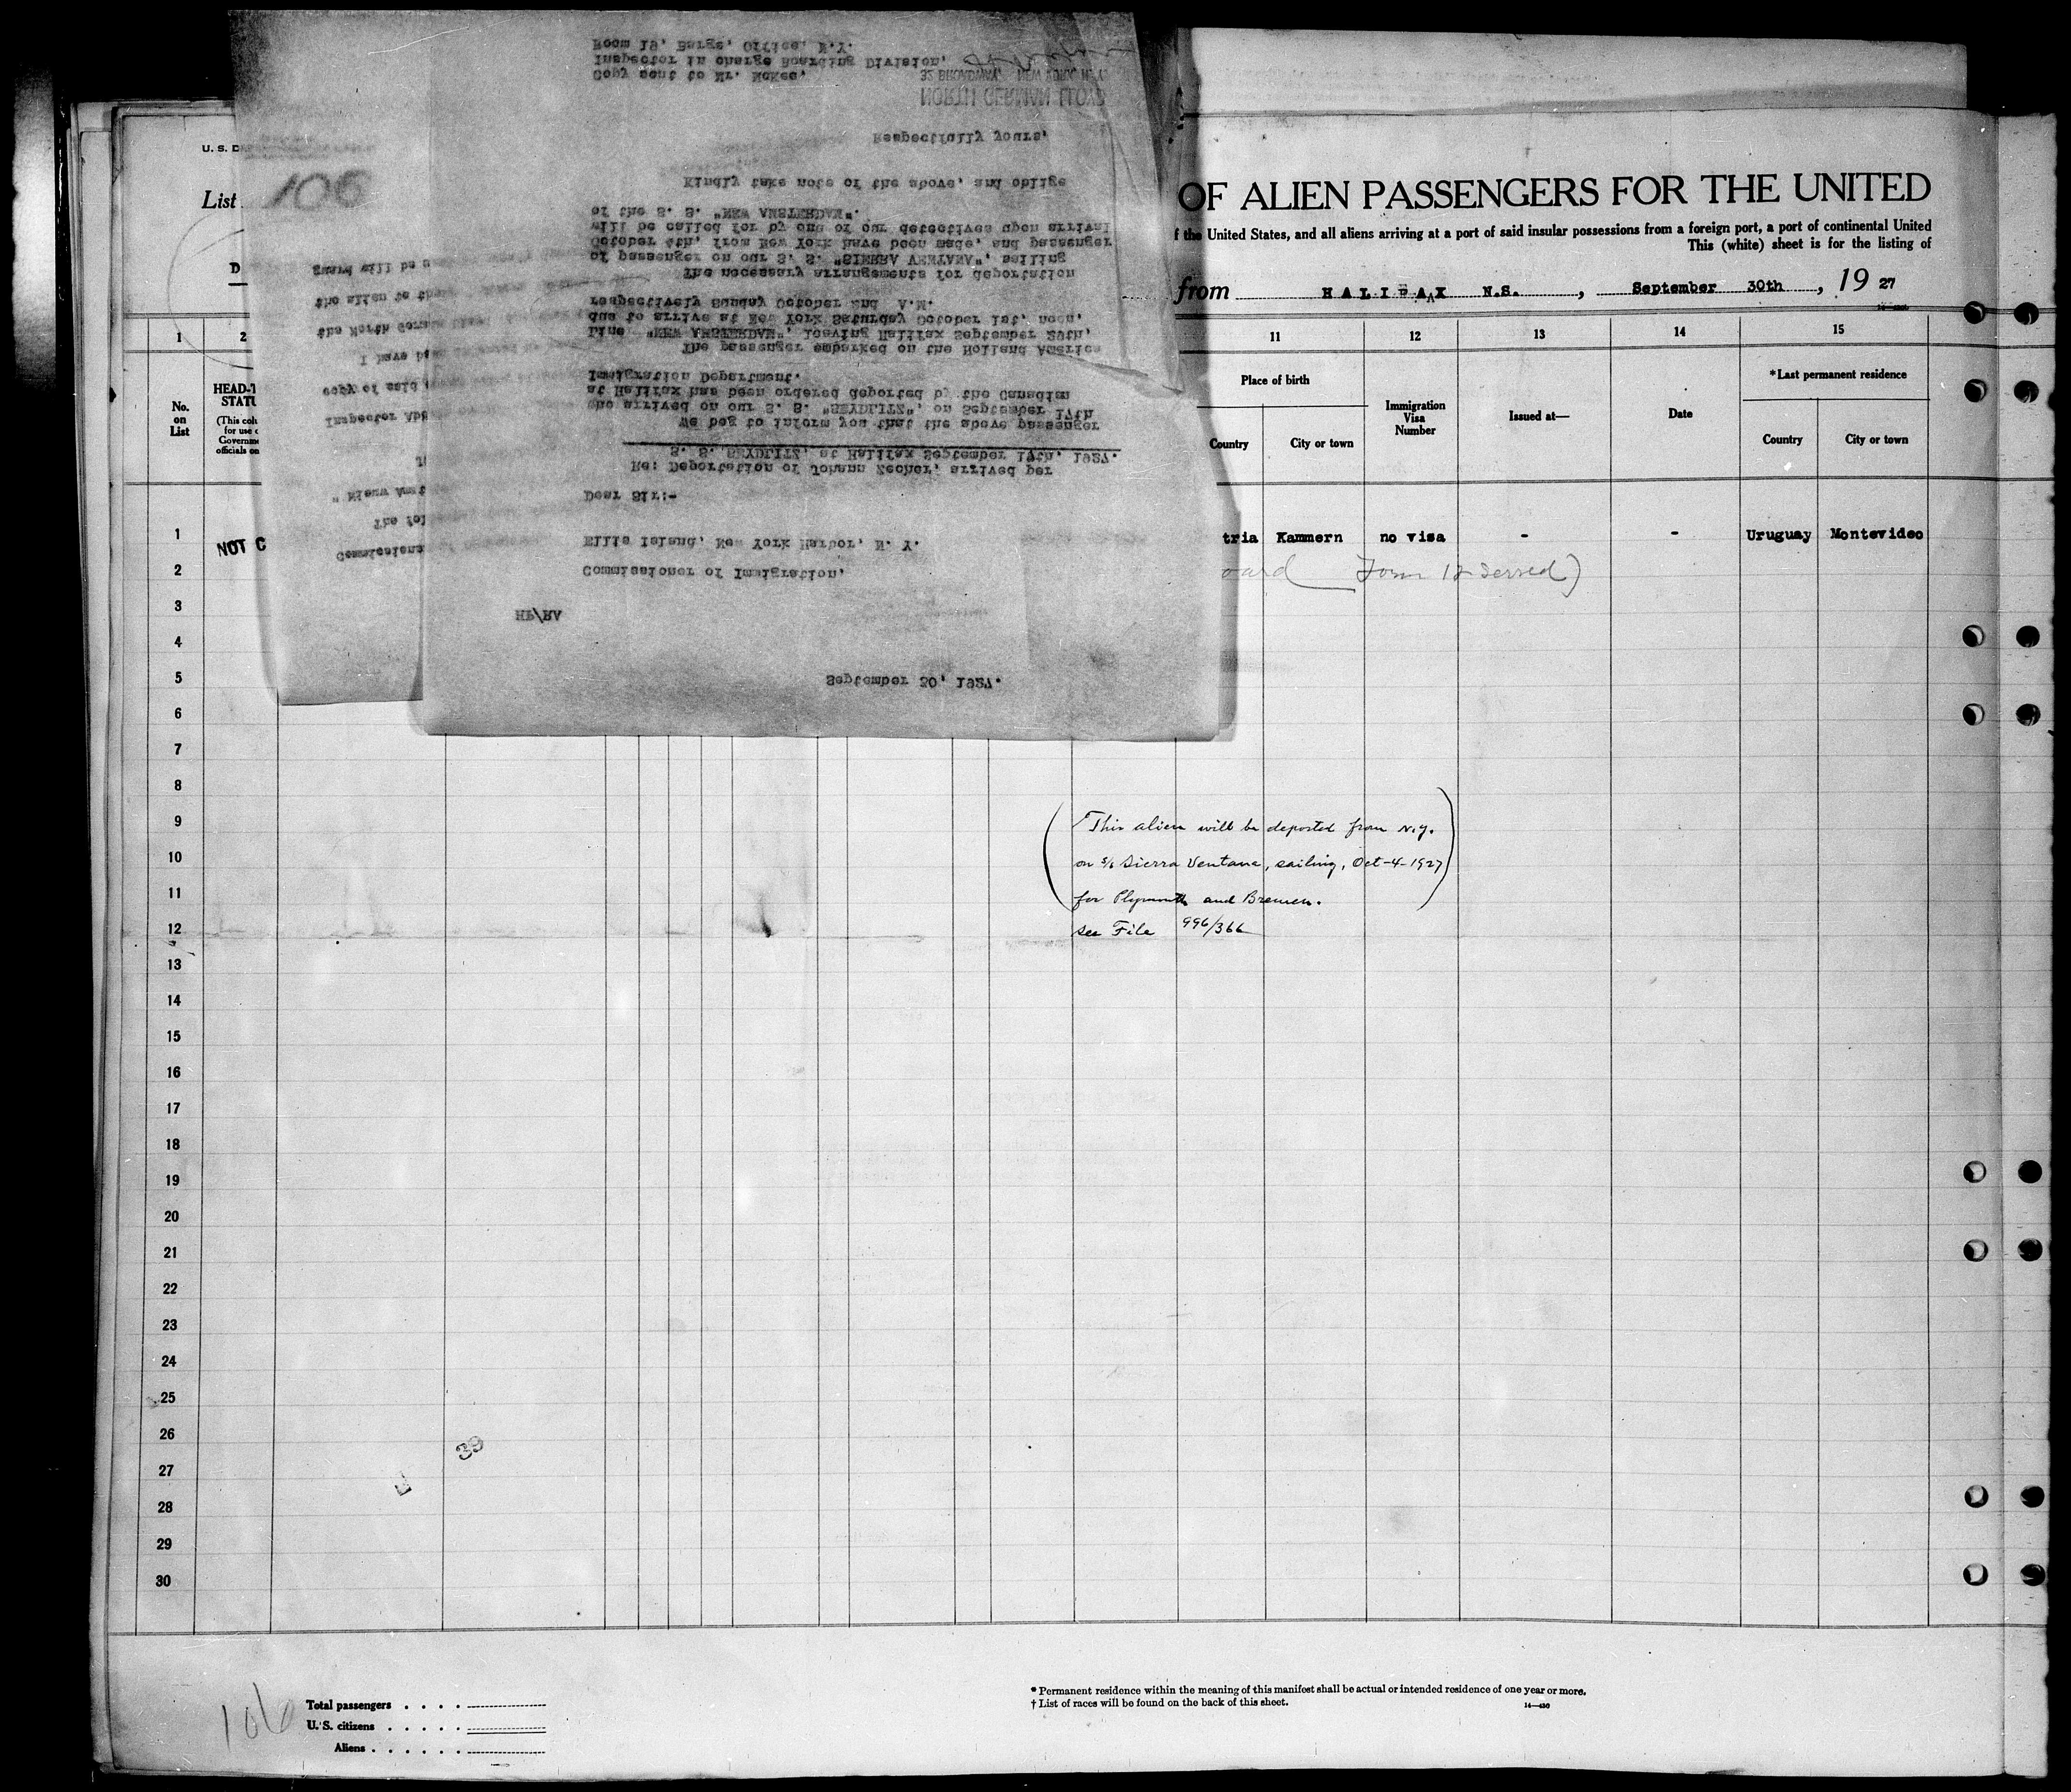 U. S. D
List
106
OF ALIEN PASSENGERS FOR THE UNITED
f the United States, and all aliens arriving at a port of said insular possessions from a foreign port, a port of continental United
This (white) sheet is for the listing of
from HALIFAX N.S., September 30th, 19 27
September 30, 1927.
HF/RA
Commissioner of Immigration,
Ellis Island, New York Harbor, N. Y.
Dear Sir:-
Re: Deportation of Johann Kecher, arrived per
S. S. SEYDLITZ, at Halifax September 17th, 1927.
We beg to inform you that the above passenger
who arrived on our S. S. "SEYDLITZ", on September 17th
at Halifax has been ordered deported by the Canadian
Immigration Department.
The passenger embarked on the Holland America
Line "NEW AMSTERDAM", leaving Halifax September 29th,
due to arrive at New York Saturday October 1st, noon,
respectively Sunday October 2nd A.M.
The necessary arrangements for deportation
of passenger on our S. S. "SIERRA VENTANA", sailing
October 4th, from New York have been made, and passenger
will be called for by one of our detectives upon arrival
of the S. S. "NEW AMSTERDAM".
Kindly take note of the above, and oblige
Respectfully yours,
NORTH GERMAN LLOYD
32 BROADWAY, NEW YORK, N.Y.
Copy sent to Mr. McKee,
Inspector in charge Boarding Division,
Room 19, Barge, Office, N.Y.
Commissione
The fol
" Nieuw Amst
Inspector
copy of said
I have
the North German
the alien to
guard will be
1 2 11 12 13 14 15
No. on List
HEAD-T
STATU
(This col
for use
Governme
officials on
Place of birth
Country
City or town
Immigration
Visa
Number
Issued at—
Date
*Last permanent residence
Country
City or town
1 NOT C tria Kammern no visa - - Uruguay Montevideo
2 oard Form 12 served)
3
4
5
6
7
8
9 (This alien will be deported from N.Y.
10 on S/S Sierra Ventana, sailing, Oct-4-1927
11 for Plymouth and Bremen.)
12 see File 996/366
13
14
15
16
17
18
19
20
21
22
23
24
25
26
39
27
28
29
30
106
Total passengers
U. S. citizens
Aliens
* Permanent residence within the meaning of this manifest shall be actual or intended residence of one year or more.
† List of races will be found on the back of this sheet.
14—430